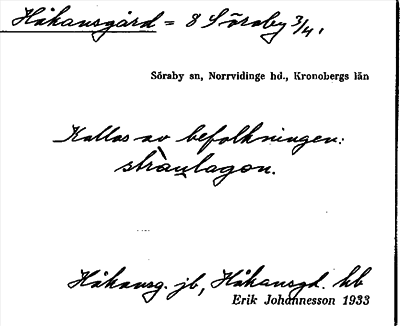 Håkansgård = 8 Söraby 3/4,
Söraby sn, Norrvidinge hd., Kronobergs län
Kallas av befolkningen:
Håkansg. jb, Håkansgd. hb
Erik Johannesson 1933